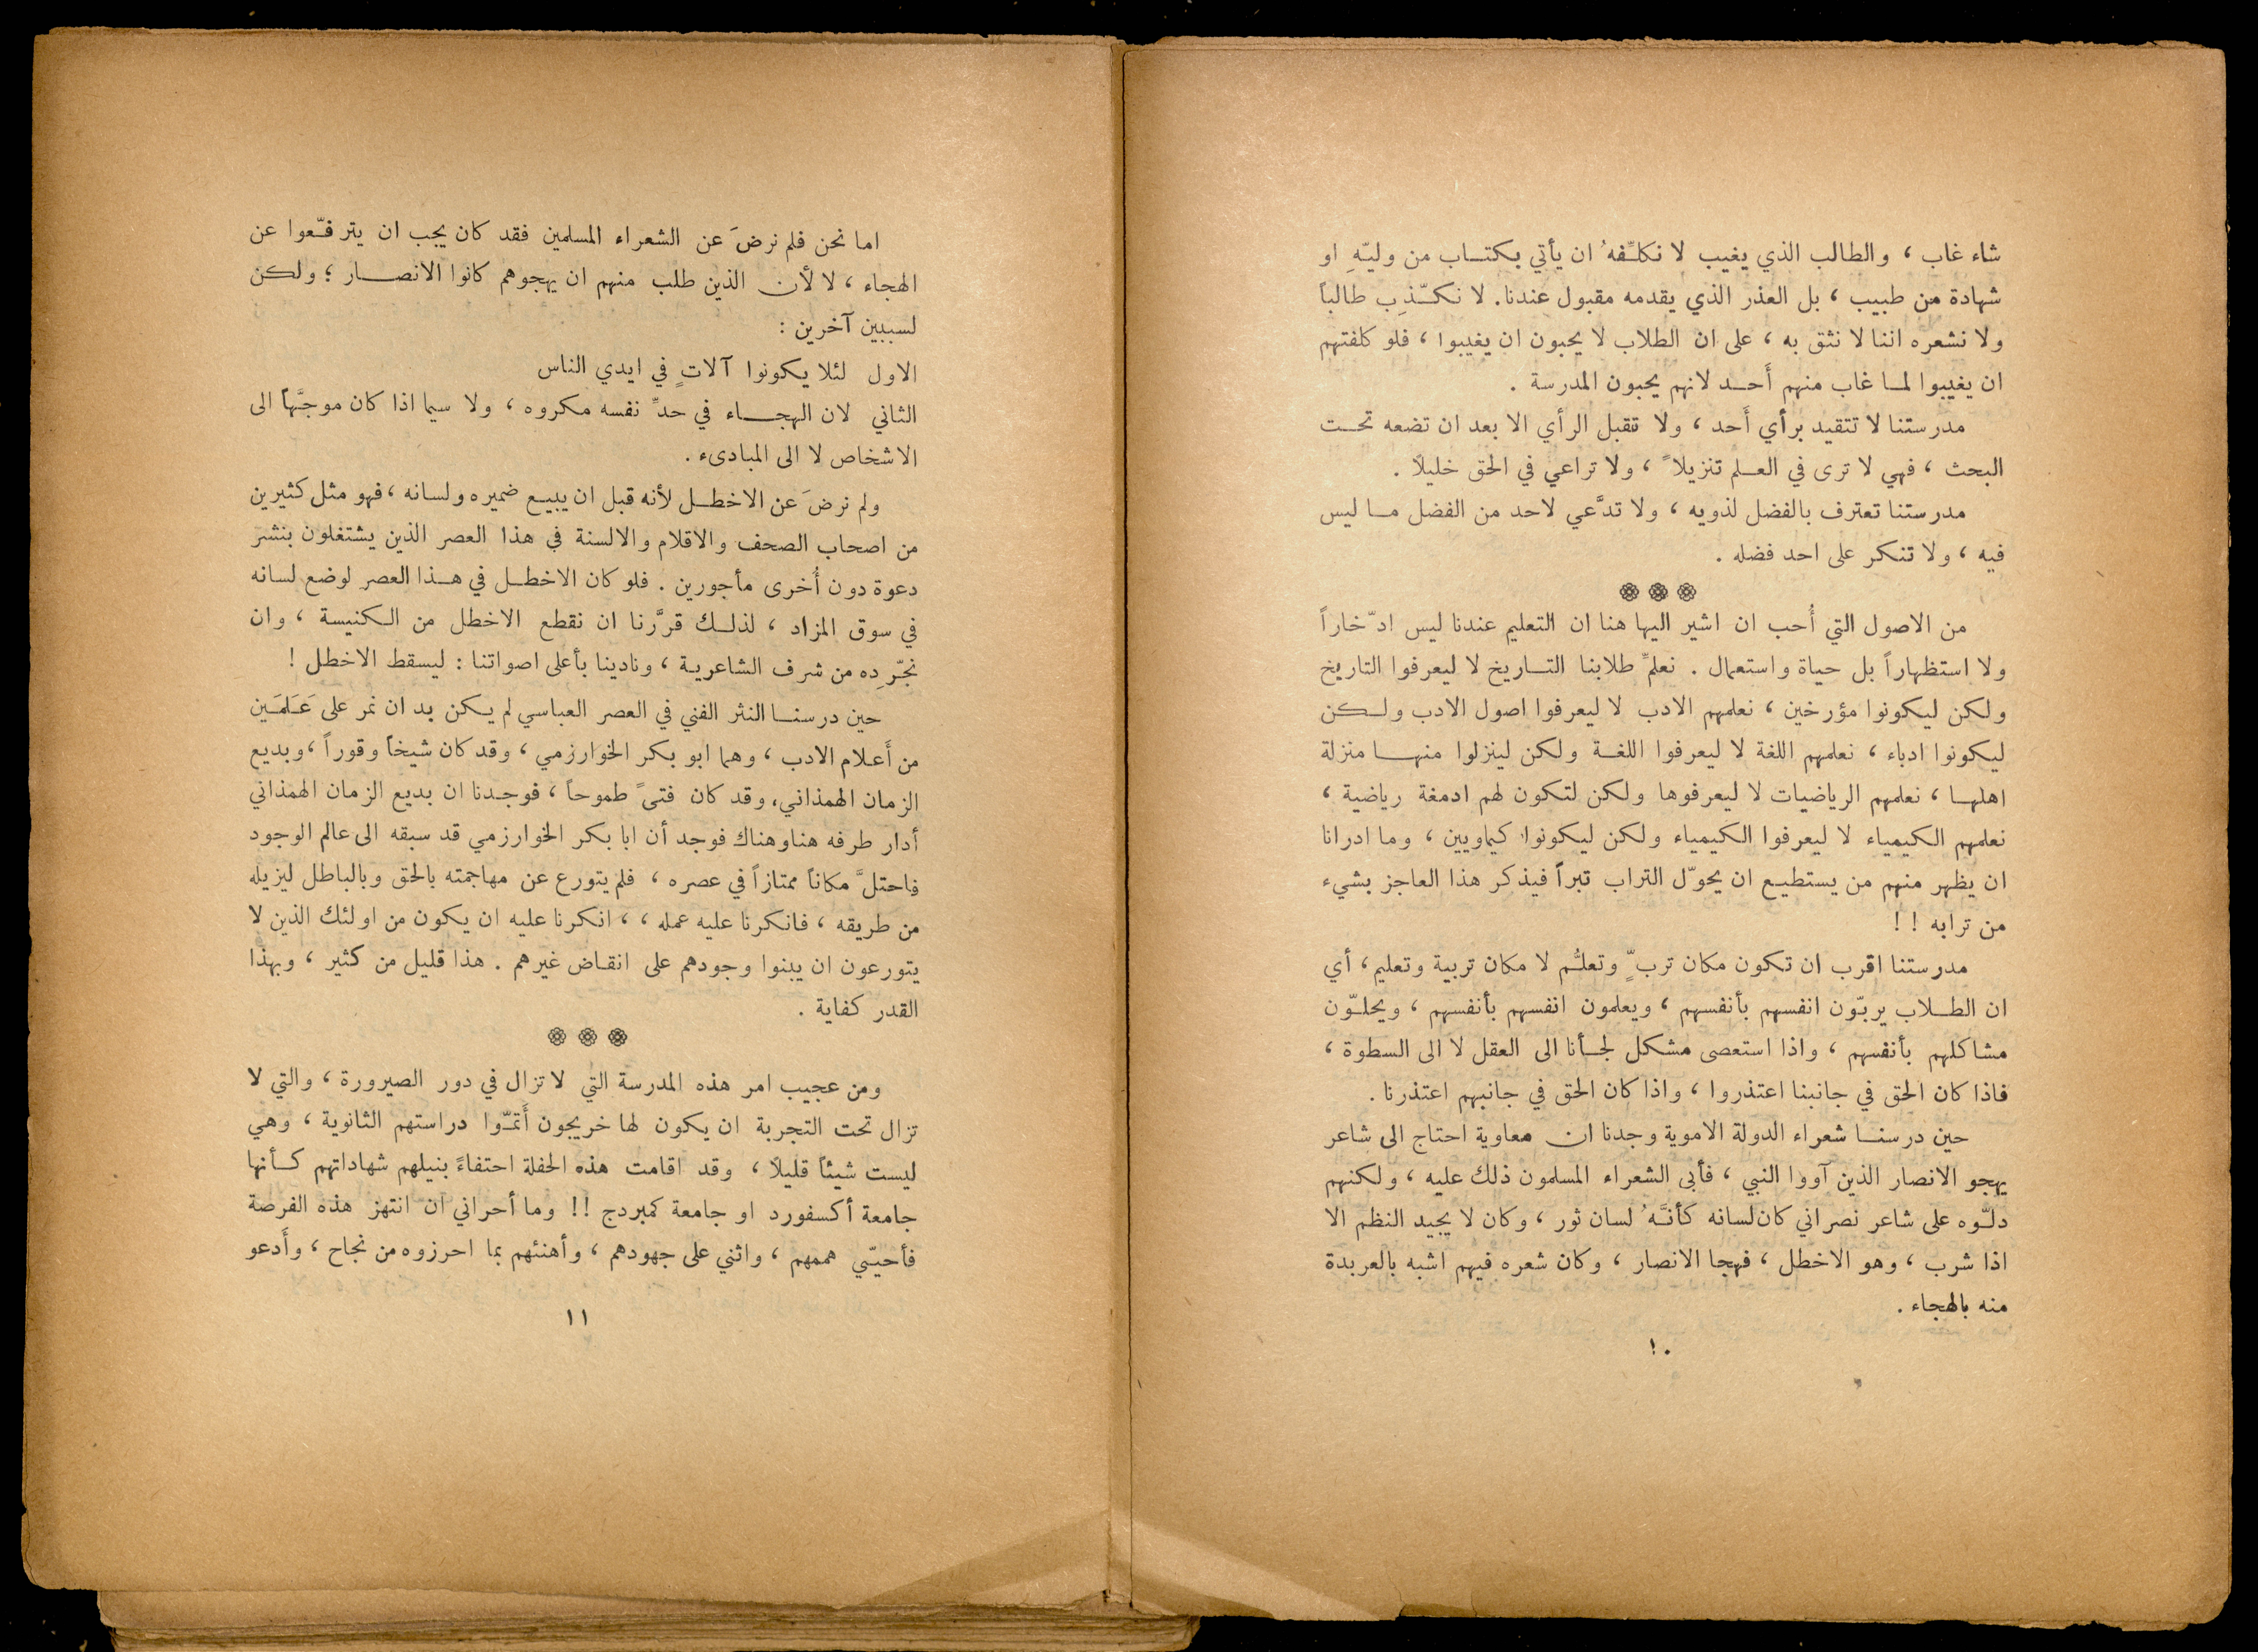 شاء غاب ، والطالب الذي يغيب لا نكلّفهُ ان يأتي بكتـاب من وليّهِ او
شهادة من طبيب ، بل العذر الذي يقدمه مقبول عندنا. لا نكـّذِب طالباً
ولا نشعره اننا لا نثق به ، على ان الطلاب لا يحبون ان يغيبوا ، فلو كلفتهم
ان يغيبوا لمـا غاب منهم أَحـد لانهم يحبون المدرسة .
مدرستنا لا تتقيد برأي أَحد ، ولا تقبل الرأي الا بعد ان تضعه تحـت
البحث ، فهي لا ترى في العـلم تنزيلاً ، ولا تراعي في الحق خليلاً .
مدرستنا تعترف بالفضل لذويه ، ولا تدَّعي لاحد من الفضل مـا ليس
فيه ، ولا تنكر على احد فضله .
من الاصول التي أُحب ان اشير اليها هنا ان التعليم عندنا ليس ادّخاراً
ولا استظهاراً بل حياة واستعمال . نعلمّ طلابنا التـاريخ لا ليعرفوا التاريخ
ولكن ليكونوا مؤرخين ، نعلمهم الادب لا ليعرفوا اصول الادب ولـكن
ليكونوا ادباء ، نعلمهم اللغة لا ليعرفوا اللغـة ولكن لينزلوا منهـا منزلة
اهلهـا ، نعلمهم الرياضيات لا ليعرفوها ولكن لتكون لهم ادمغة رياضية ،
نعلمهم الكيمياء لا ليعرفوا الكيمياء ولكن ليكونوا كيماويين ، وما ادرانا
ان يظهر منهم من يستطيـع ان يحوّل التراب تبراً فيذكر هذا العاجز بشيء
من ترابه ! !
مدرستنا اقرب ان تكون مكان تربٍّ وتعلُّم لا مكان تربية وتعليم، أي
ان الطـلاب يربّون انفسهم بأنفسهم ، ويعلمون انفسهم بأنفسهم ، ويحلـّون
مشاكلهم بأنفسهم ، واذا استعصى مشكل لجـأنا الى العقل لا الى السطوة ،
فاذا كان الحق في جانبنا اعتذروا ، واذا كان الحق في جانبهم اعتذرنا .
حين درسنـا شعراء الدولة الاموية وجدنا ان معاوية احتاج الى شاعر
يهجو الانصار الذين آووا النبي ، فأبى الشعراء المسلمون ذلك عليه ، ولكنهم
دلـّوه على شاعر نصراني كان لسانه كأنَّهُ لسان ثور ، وكان لا يجيد النظم الا
اذا شرب ، وهو الاخطل ، فهجا الانصار ، وكان شعره فيهم اشبه بالعربدة
منه بالهجاء .
١٠
اما نحن فلم نرضَ عن الشعراء المسلمين فقد كان يجب ان يترفـّعوا عن
الهجاء ، لا لأن الذين طلب منهم ان يهجوهم كانوا الانصـار ؛ ولكن
لسببين آخرين :
الاول لئلا يكونوا آلاتٍ في ايدي الناس
الثاني لان الهجـاء في حدّ نفسه مكروه ، ولا سيما اذا كان موجَّهاً الى
الاشخاص لا الى المبادىء .
ولم نرضَ عن الاخطـل لأنه قبل ان يبيـع ضميره ولسانه ، فهو مثل كثيرين
من اصحاب الصحف والاقلام والالسنة في هذا العصر الذين يشتغلون بنشر
دعوة دون أُخرى مأجورين . فلو كان الاخطـل في هـذا العصر لوضع لسانه
في سوق المزاد ، لذلـك قرَّرنا ان نقطع الاخطل من الـكنيسة ، وان
نجـّرِده من شرف الشاعريـة ، ونادينا بأعلى اصواتنا : ليسقط الاخطل !
حين درسنـا النثر الفني في العصر العباسي لم يـكن بد ان نمر على عَـلَمَـين
من أَعـلام الادب ، وهما ابو بكر الخوارزمي ، وقد كان شيخاً وقوراً ، وبديع
الزمان الهمذاني، وقد كان فتىً طموحاً ، فوجـدنا ان بديع الزمان الهمذاني
أدار طرفه هنا وهناك فوجد أن ابا بكر الخوارزمي قد سبقه الى عالم الوجود
فاحتلَّ مكاناً ممتازاً في عصره ، فلم يتورع عن مهاجمته بالحق وبالباطل ليزيله
من طريقه ، فانكرنا عليه عمله ، ، انكرنا عليه ان يكون من اولئك الذين لا
يتورعون ان يبنوا وجودهم على انقـاض غيرهم . هذا قليل من كثير ، وبهذا
القدر كفاية .
ومن عجيب امر هذه المدرسة التي لا تزال في دور الصيرورة ، والتي لا
تزال تحت التجربة ان يكون لها خريجون أَتمـّوا دراستهم الثانوية ، وهي
ليست شيئاً قليلاً ، وقد اقامت هذه الحفلة احتفاءً بنيلهم شهاداتهم كـأنها
جامعة أكسفورد او جامعة كمبردج !! وما أحراني ان انتهز هذه الفرصة
فأحيـّي هممهم ، واثني على جهودهم ، وأهنئهم بما احرزوه من نجاح ، وأَدعو
١١